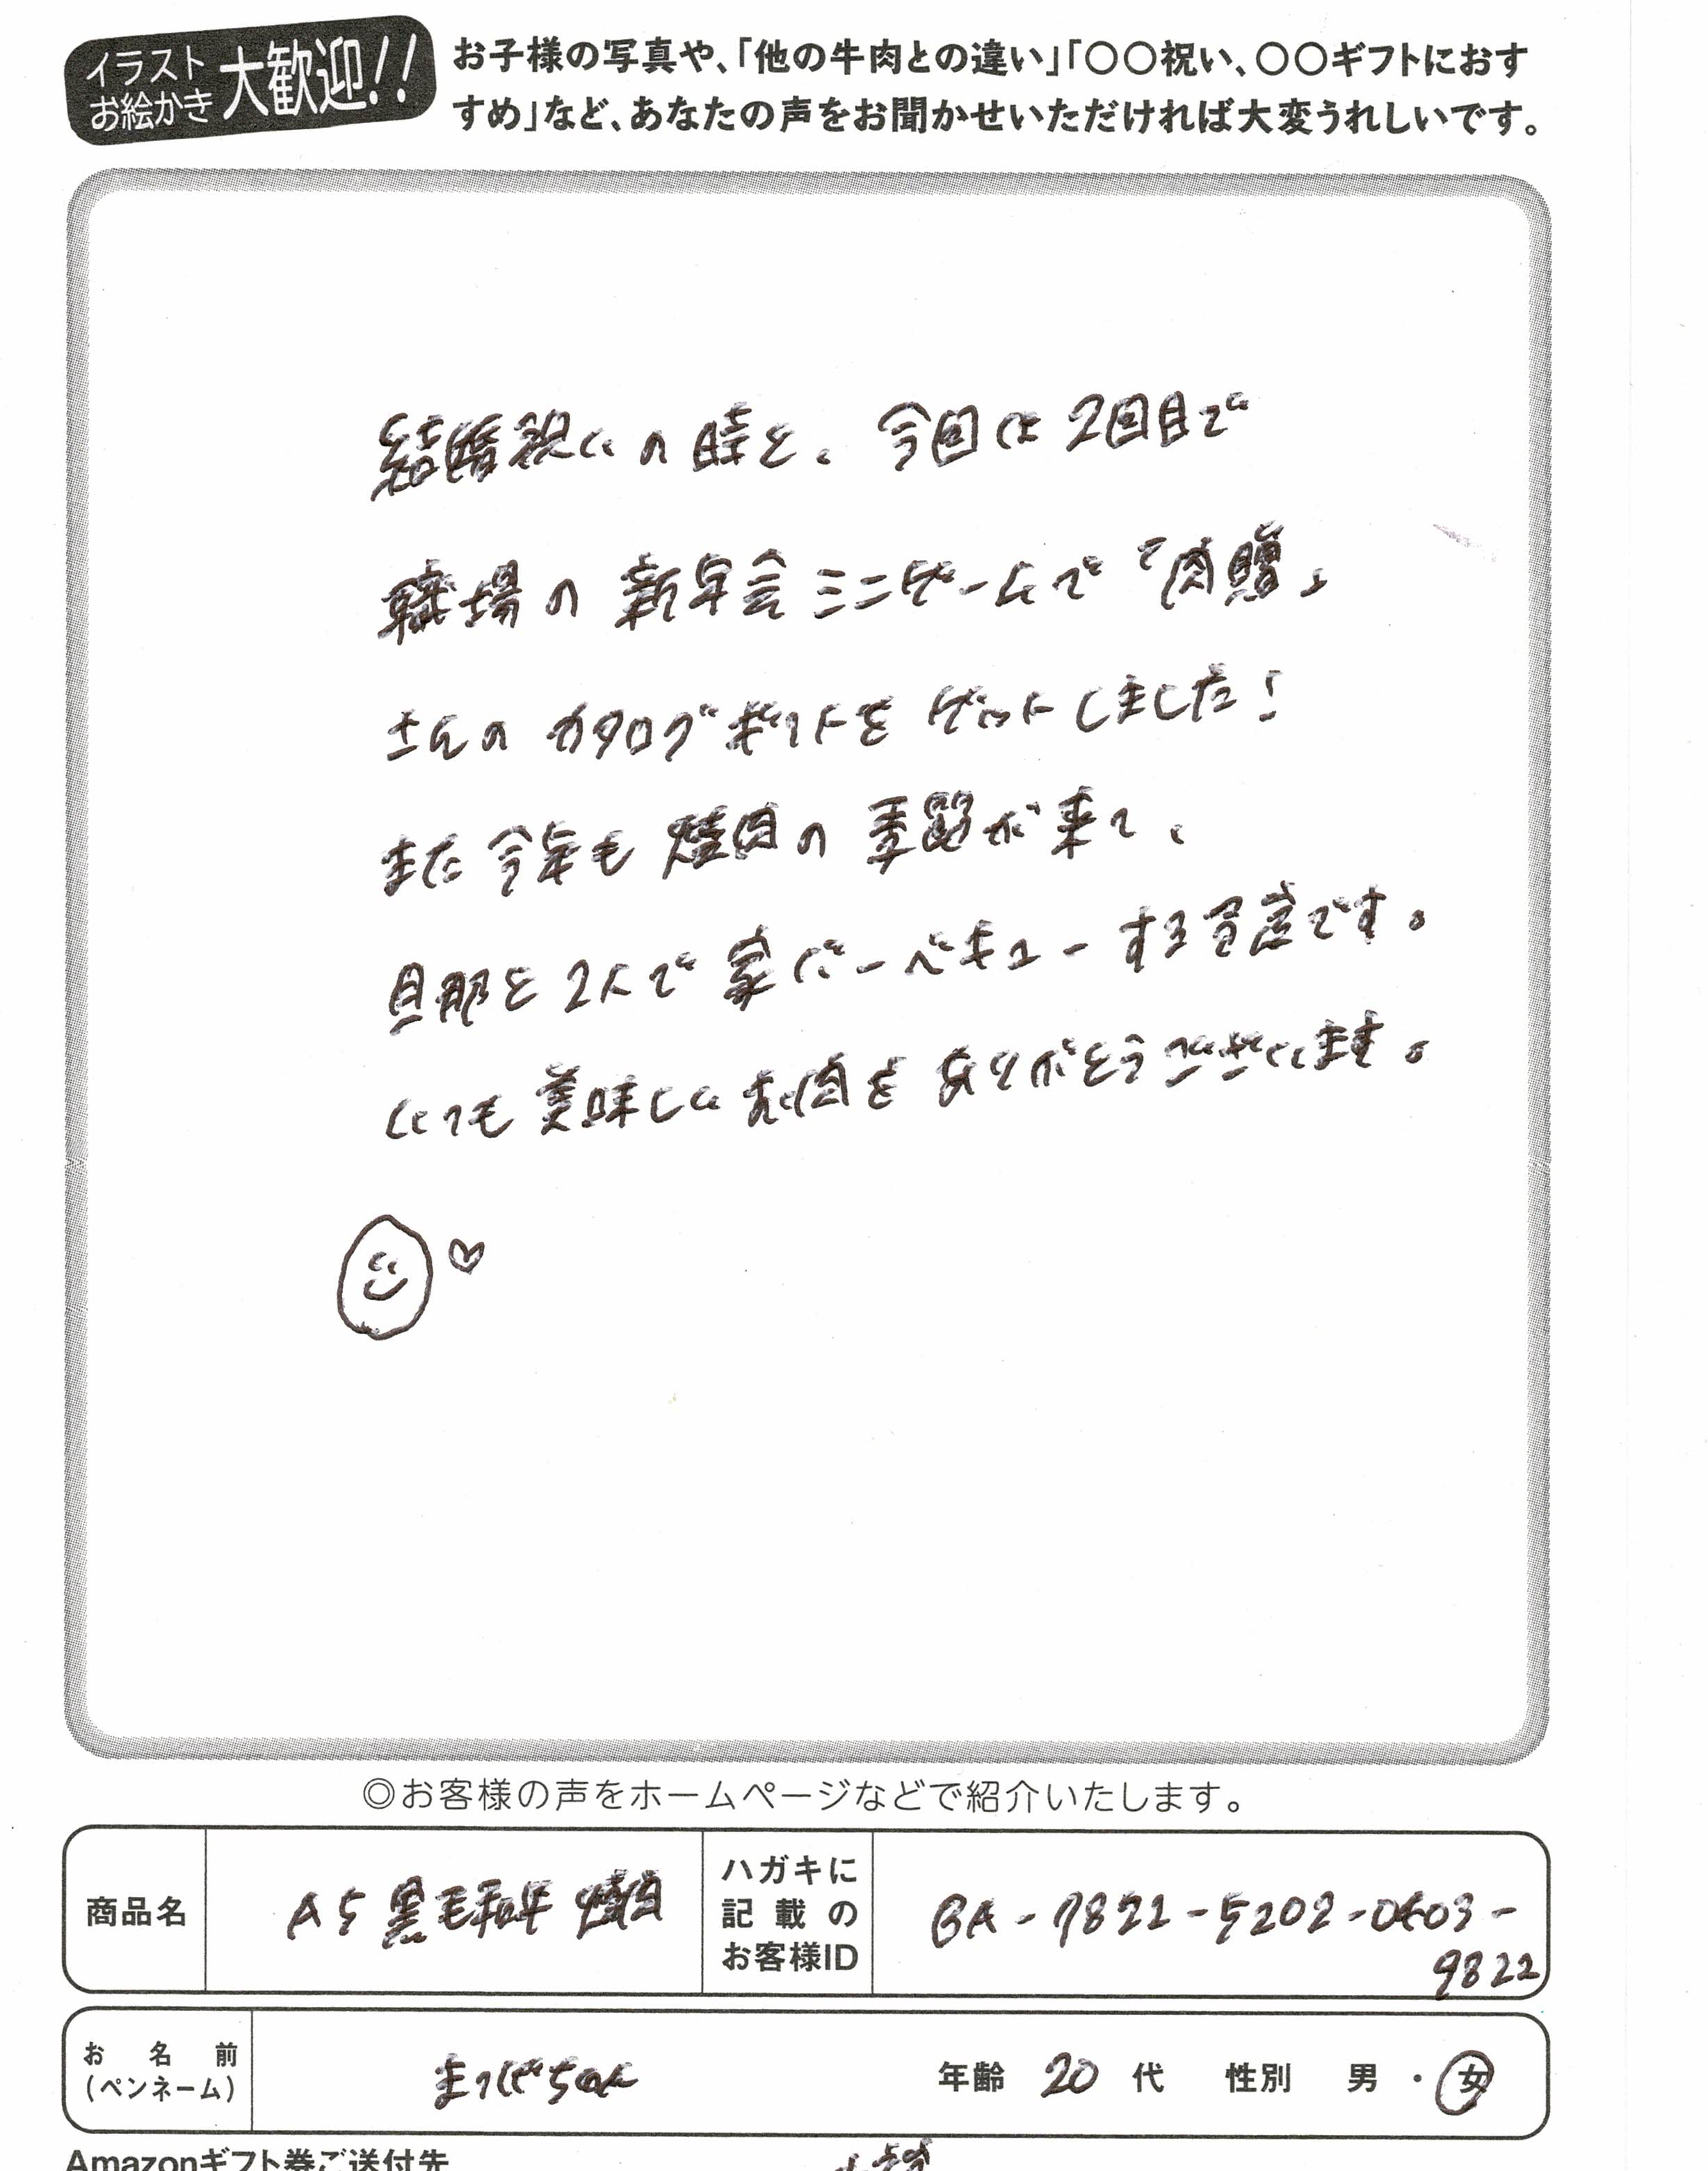 イラスト
お絵かき
大歓迎!!
お子様の写真や、「他の牛肉との違い」「〇〇祝い、〇〇ギフトにおす
すめ」など、あなたの声をお聞かせいただければ大変うれしいです。
結婚祝いの時と、今回は2回目で
職場の新年会ミニゲームで「肉贈」
さんのカタログギフトをゲットしました!
また今年も焼肉の季節が来て、
旦那と2人で家バーベキューする予定です。
いつも美味しいお肉をありがとうございます。
◎お客様の声をホームページなどで紹介いたします。
商品名
A5 黒毛和牛 焼肉
ハガキに
記載の
お客様ID
BA-9822-5202-0603-
9822
お名前
(ペンネーム)
まつげちゃん
年齢 20 代 性別 男・女
Amazonギフト券ご送付先